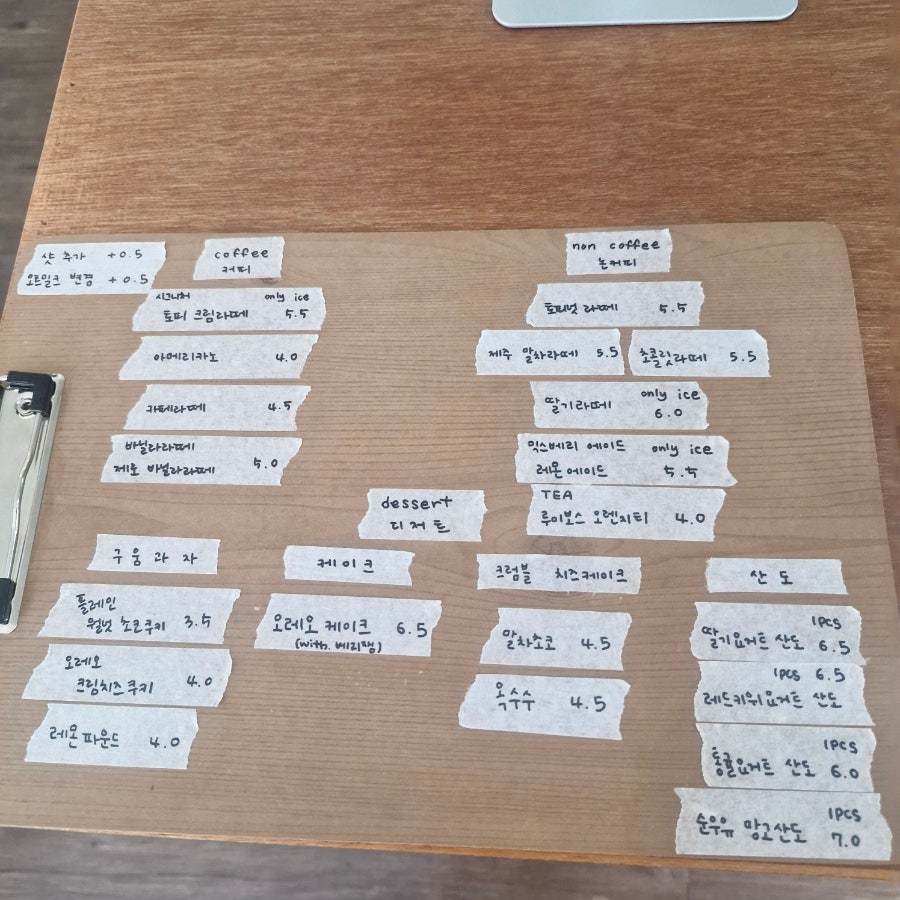 샷 추가 +0.5
오트밀크 변경 +0.5
coffee
커피
시그니처 only ice
토피 크림라떼 5.5
아메리카노 4.0
카페라떼 4.5
바닐라라떼
제로 바닐라라떼 5.0
non coffee
논커피
토피넛 라떼 5.5
제주 말차라떼 5.5
초콜릿라떼 5.5
딸기라떼 only ice
6.0
믹스베리 에이드 only ice
레몬에이드 5.5
TEA
루이보스 오렌지티 4.0
dessert
디저트
구움과자
플레인
월넛 초코쿠키 3.5
오레오
크림치즈쿠키 4.0
레몬파운드 4.0
케이크
오레오 케이크 6.5
(with. 베리잼)
크럼블 치즈케이크
말차초코 4.5
옥수수 4.5
산도
1pcs
딸기요거트 산도 6.5
1pcs 6.5
레드키위요거트 산도
1pcs
통귤요거트 산도 6.0
1pcs
순우유 망고산도 7.0